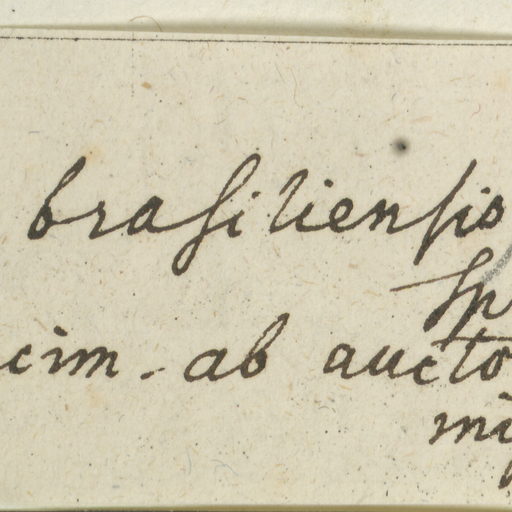 brasiliensis
Sp
cim. ab aucto
mi